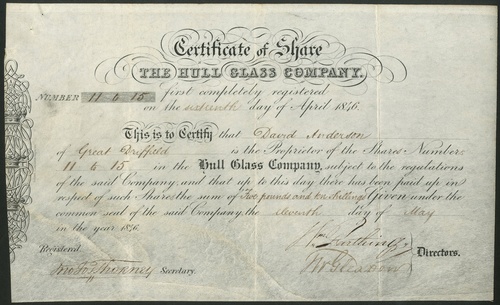 Certificate of Share
THE HULL GLASS COMPANY.
first completely registered
NUMBER 11 to 15
on the sixteenth day of April 1846.
This is to Certify that David Anderson
of Great Driffield is the Proprietor of the Shares Number
11 to 15 in the Hull Glass Company, subject to the regulations
of the said Company, and that up to this day there has been paid up in
respect of such Shares the sum of Two pounds and ten shillings Given under the
common seal of the said Company, the eleventh day of May
in the year 1846.
Registered
Secretary.
Directors.